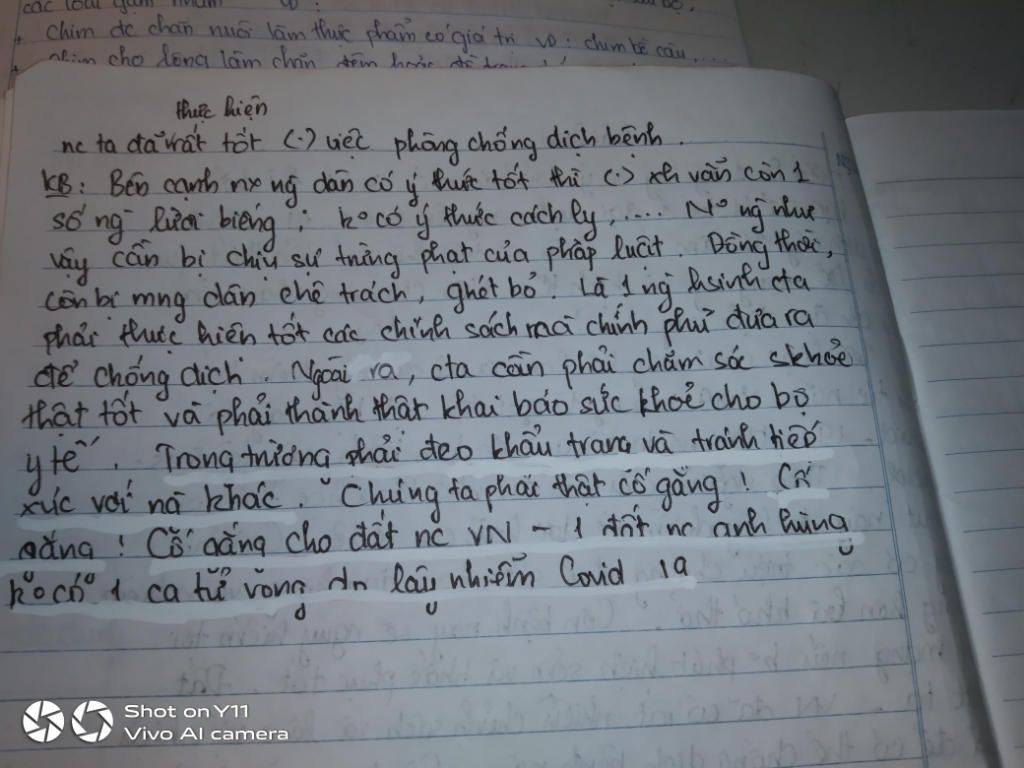 các loài gặm nhấm
+ chim đc chăn nuôi làm thực phẩm có giá trị vd: chim bồ câu,...
cho lông làm chăn đệm hoặc để
thực hiện
nc ta đã rất tốt (.) việc phòng chống dịch bệnh.
KB: Bên cạnh nx ng dân có ý thức tốt thì (.) xh vẫn còn 1
số ng lười biếng; ko có ý thức cách ly, .... No ng như
vậy cần bị chịu sự trừng phạt của pháp luật. Đồng thời,
còn bị mng dân chê trách, ghét bỏ. Là 1 ng hsinh cta
phải thực hiện tốt các chính sách mà chính phủ đưa ra
để chống dịch. Ngoài ra, cta cần phải chăm sóc skhoẻ
thật tốt và phải thành thật khai báo sức khoẻ cho bộ
y tế. Trong trường phải đeo khẩu trang và tránh tiếp
xúc với ng khác. "Chúng ta phải thật cố gắng! Cố
gắng! Cố gắng cho đất nc VN - 1 đất nc anh hùng
ko có 1 ca tử vong do lây nhiễm Covid 19
Shot on Y11
Vivo AI camera